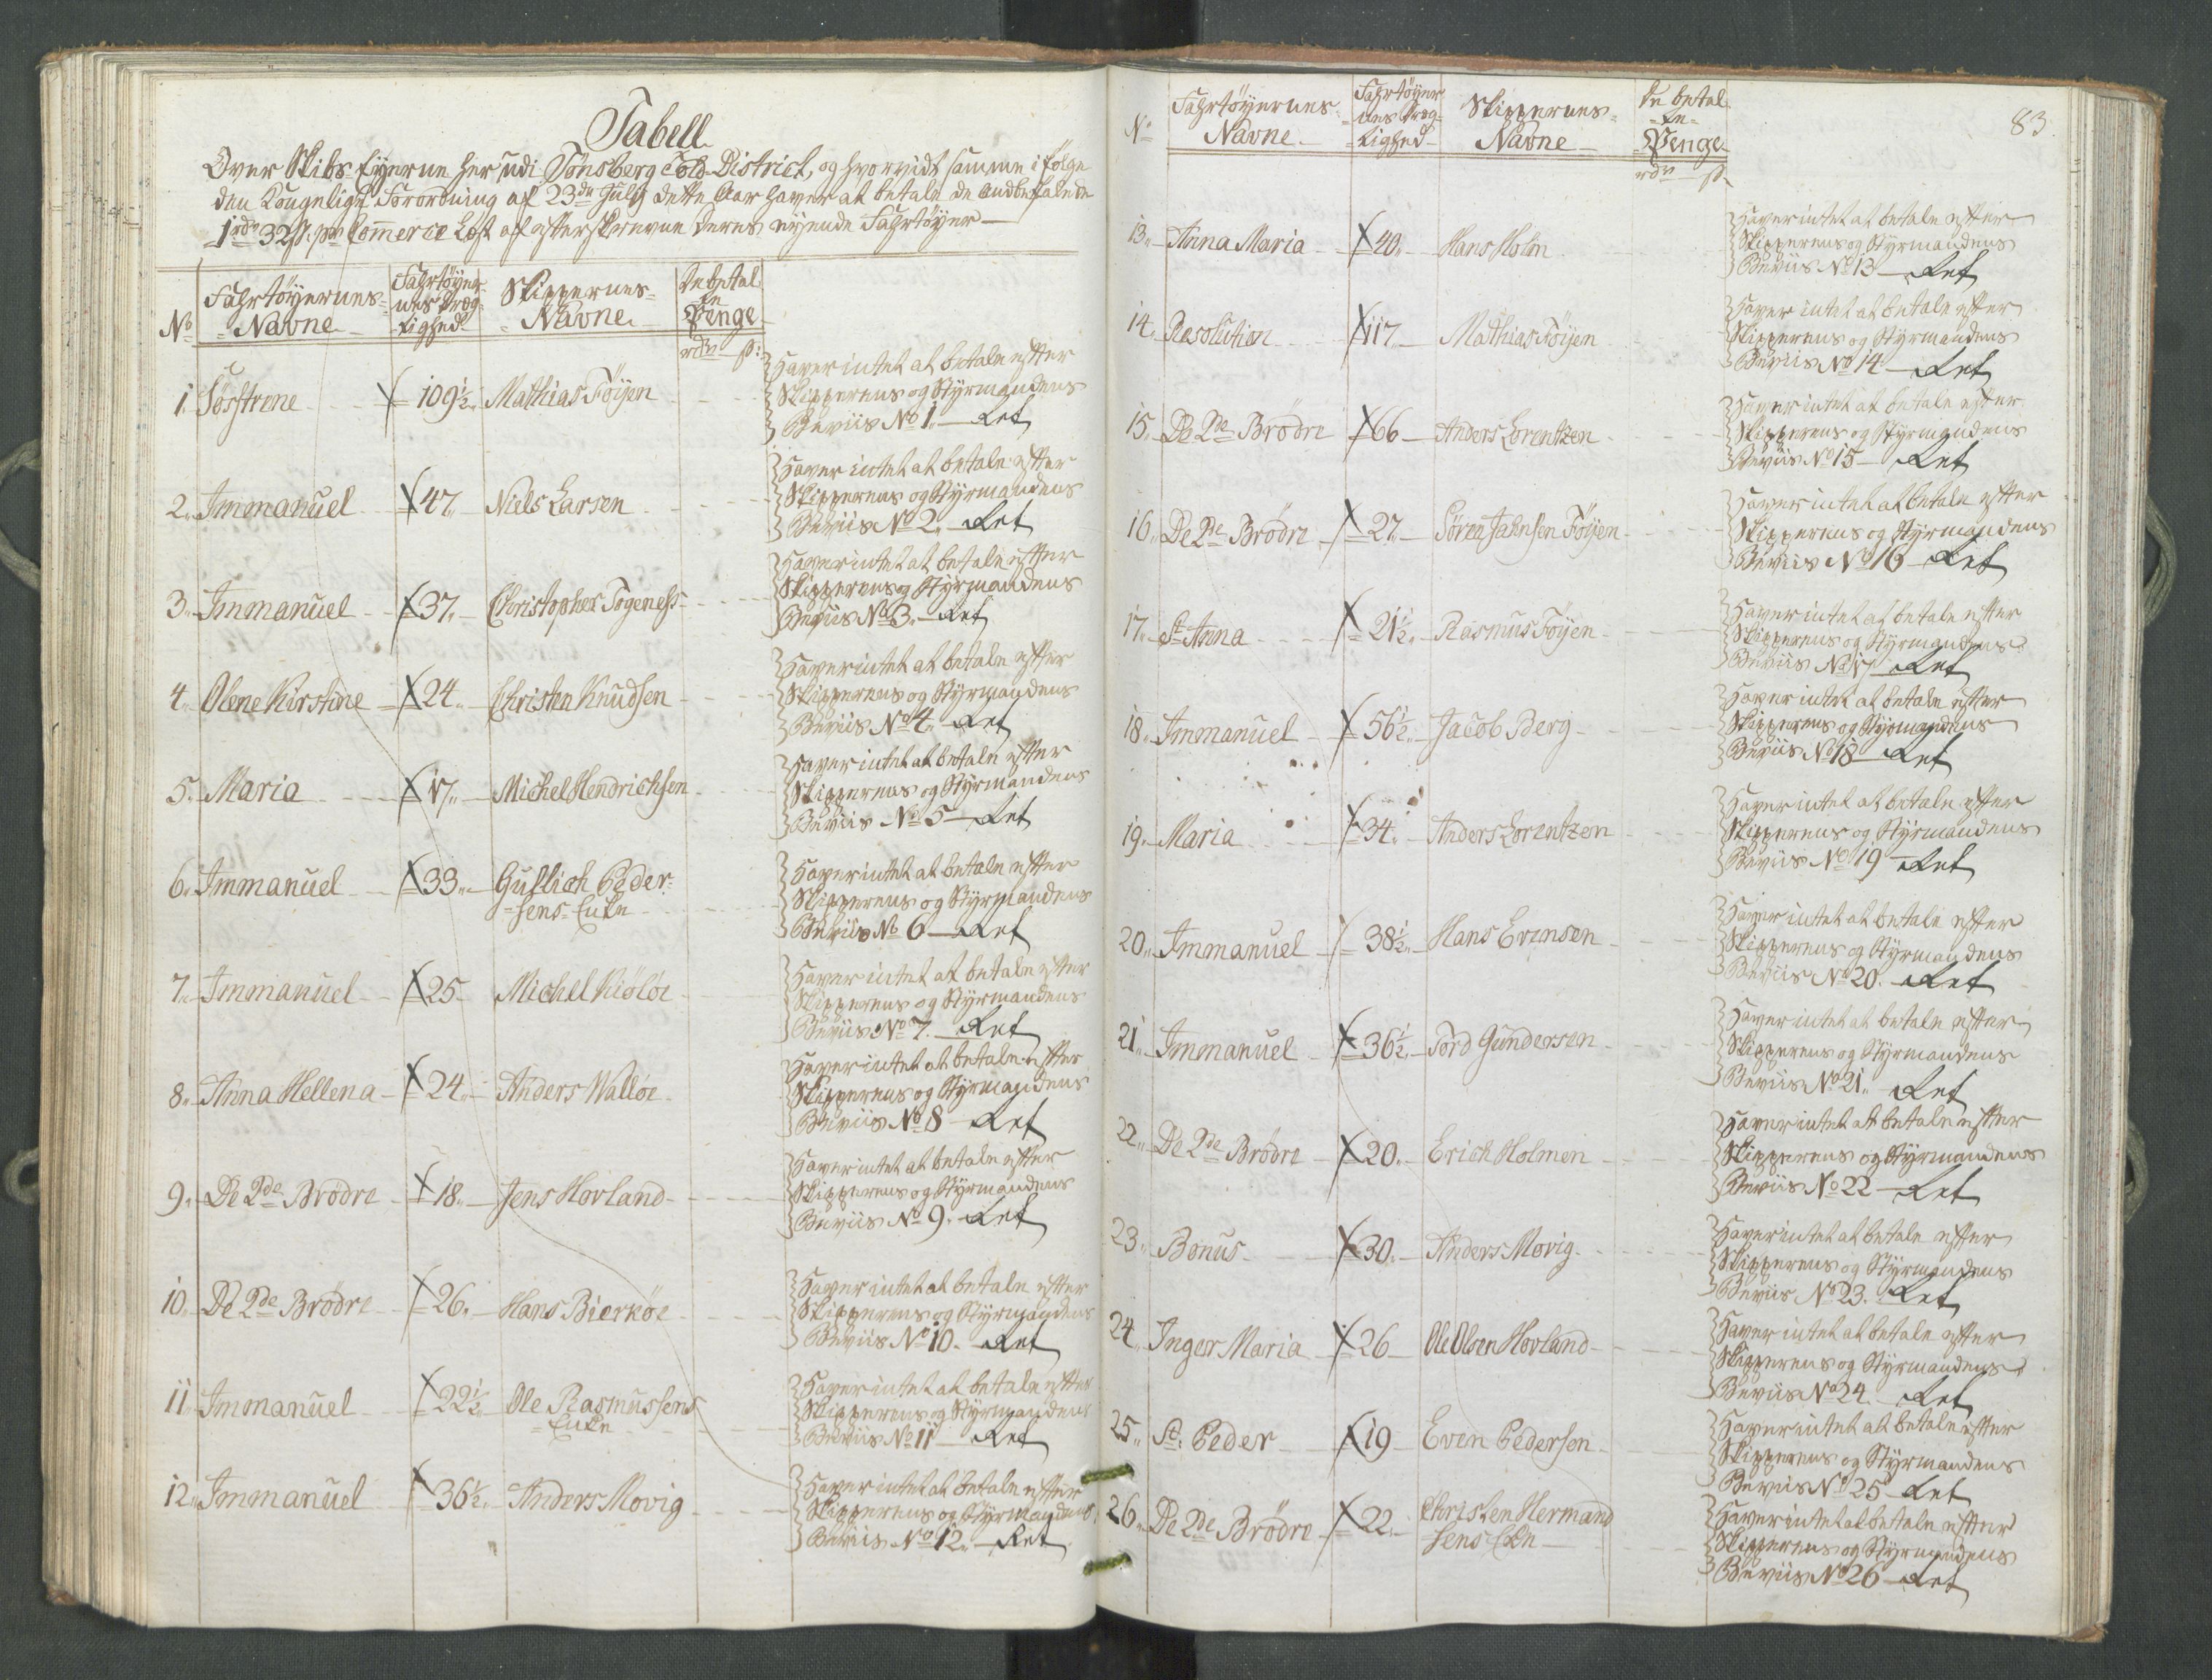 Tabell
Over Skibs Eyerne her udi Tönsberg Told-District, og hvorvidt samme i følge
den Kongelige Forordning af 23de July dette Aar haver at betale de anbefalede
1 rdr 32 s. pr Commerce Læst af efterskrevne deres eyende Fahrtöyer —
No
Fahrtöyernes
Navne
Fahrtöyer
nes Dræg
tighed
Skippernes
Navne
De betal
te
Penge
rdr s:
1. Söstrene 109½ Mathias Föyen
Haver intet at betale efter
Skipperens og Styrmandens
Beviis No 1. Ret
2. Immanuel 47. Niels Larsen
Haver intet at betale efter
Skipperens og Styrmandens
Beviis No 2. Ret
3. Immanuel 37. Christopher Togeness
Haver intet at betale efter
Skipperens og Styrmandens
Beviis No 3. Ret
4. Olene Kirstine 24. Christen Knudsen
Haver intet at betale efter
Skipperens og Styrmandens
Beviis No 4. Ret
5. Maria 17. Michel Hendrichsen
Haver intet at betale efter
Skipperens og Styrmandens
Beviis No 5 Ret
6. Immanuel 33. Gullich Peder-
sens Enke
Haver intet at betale efter
Skipperens og Styrmandens
Beviis No 6 Ret
7. Immanuel 25 Michel Kiölöe
Haver intet at betale efter
Skipperens og Styrmandens
Beviis No 7. Ret
8. Anna Hellena 24. Anders Wallöe
Haver intet at betale efter
Skipperens og Styrmandens
Beviis No 8 Ret
9. De 2de Brödre 18. Jens Hovland
Haver intet at betale efter
Skipperens og Styrmandens
Beviis No 9. Ret
10. De 2de Brödre 26. Hans Bierköe
Haver intet at betale efter
Skipperens og Styrmandens
Beviis No 10. Ret
11. Immanuel 22½ Ole Rasmussens
Enke
Haver intet at betale efter
Skipperens og Styrmandens
Beviis No 11 Ret
12. Immanuel 36½ Anders Movig
Haver intet at betale efter
Skipperens og Styrmandens
Beviis No 12. Ret
83.
No
Fahrtöyernes
Navne
Fahrtöyer
nes Dræg
tighed
Skippernes
Navne
De betal
te
Penge
rdr s
13. Anna Maria 40. Hans Holm
Haver intet at betale efter
Skipperens og Styrmandens
Beviis No 13 Ret
14. Resolution 117. Mathias Föyen
Haver intet at betale efter
Skipperens og Styrmandens
Beviis No 14 Ret
15. De 2de Brödre 66 Anders Lorentzen
Haver intet at betale efter
Skipperens og Styrmandens
Beviis No 15 Ret
16. De 2de Brödre 27. Sören Jahnsen Föyen
Haver intet at betale efter
Skipperens og Styrmandens
Beviis No 16 Ret
17. St Anna 21½ Rasmus Föyen
Haver intet at betale efter
Skipperens og Styrmandens
Beviis No 17 Ret
18. Immanuel 56½ Jacob Berg
Haver intet at betale efter
Skipperens og Styrmandens
Beviis No 18 Ret
19. Maria 34. Anders Lorentzen
Haver intet at betale efter
Skipperens og Styrmandens
Beviis No 19 Ret
20. Immanuel 38½ Hans Evensen
Haver intet at betale efter
Skipperens og Styrmandens
Beviis No 20. Ret
21. Immanuel 36½ Tord Gundersen
Haver intet at betale efter
Skipperens og Styrmandens
Beviis No 21. Ret
22. De 2de Brödre 20. Erich Holmen
Haver intet at betale efter
Skipperens og Styrmandens
Beviis No 22 Ret
23. Bonus 30. Anders Movig
Haver intet at betale efter
Skipperens og Styrmandens
Beviis No 23. Ret
24. Inger Maria 26 Ole Olsen Hovland
Haver intet at betale efter
Skipperens og Styrmandens
Beviis No 24. Ret
25. St. Peder 19 Even Pedersen
Haver intet at betale efter
Skipperens og Styrmandens
Beviis No 25 Ret
26. De 2de Brödre 22. Christen Hermand
sens Enke
Haver intet at betale efter
Skipperens og Styrmandens
Beviis No 26 Ret